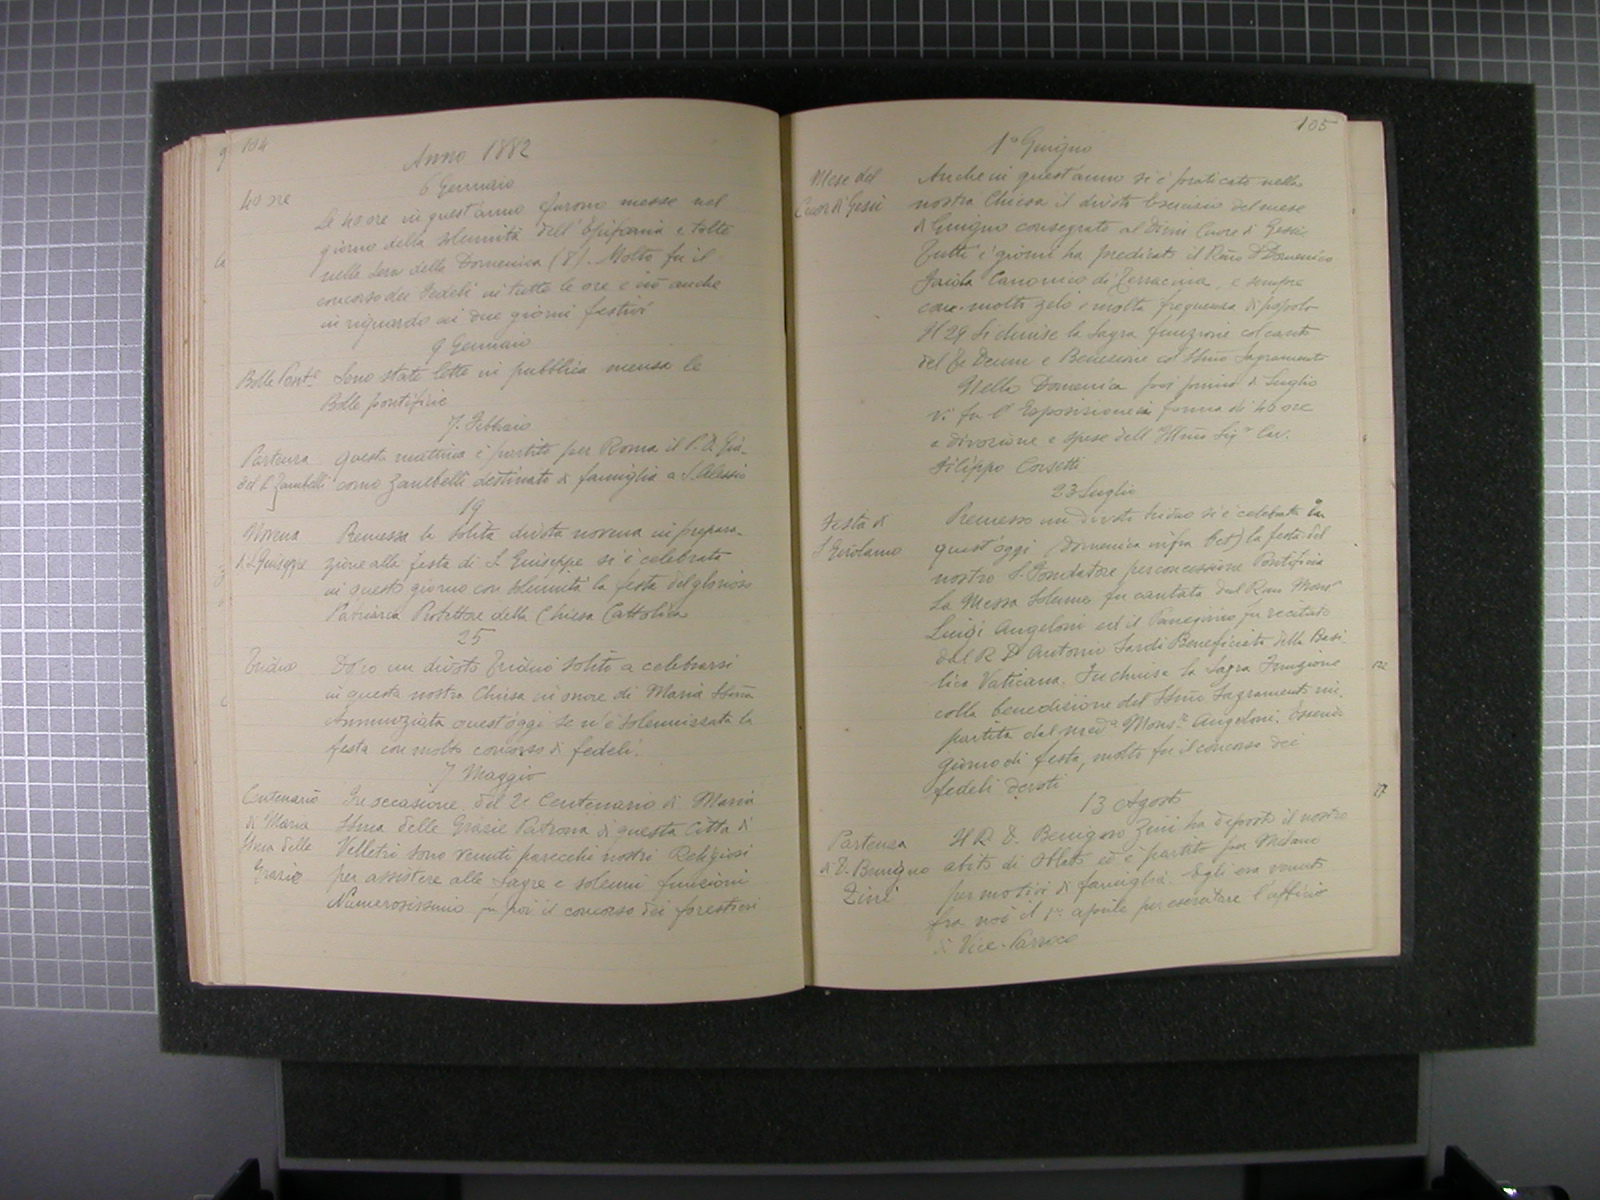 104
Anno 1882
6 Gennaio
40 ore
Le 40 ore in quest'anno furono messe nel
giorno della solennità dell'Epifania e tolte
nella sera della Domenica (8). Molto fu il
concorso dei Fedeli in tutte le ore e ciò anche
in riguardo ai due giorni festivi
9 Gennaio
Bolle Pont.e Sono state lette in pubblica mensa le
Bolle pontificie
7. Febbraio
Partenza questa mattina è partito per Roma il P. D. Gia-
del P. Zambelli como Zambelli destinato di famiglia a S. Alessio
19
Novena Premessa la solita divota novena in prepara-
di S. Giuseppe zione alla festa di S. Giuseppe si è celebrata
in questo giorno con solennità la festa del glorioso
Patriarca Protettore della Chiesa Cattolica
25
Triduo Dopo un divoto Triduo solito a celebrarsi
in questa nostra Chiesa in onore di Maria SSma
Annunziata quest'oggi se n'è solennizzata la
festa con molto concorso di fedeli.
7. Maggio
Centenario In occasione del 2° Centenario di Maria
di Maria SSma delle Grazie Patrona di questa Città di
SSma delle Velletri sono venuti parecchi nostri Religiosi
Grazie per assistere alle sagre e solenni funzioni
Numerosissimo fu poi il concorso dei forestieri
105
1° Giugno
Mese del Anche in quest'anno si è praticato nella
Cuore di Gesù nostra Chiesa il divoto Esercizio del mese
di Giugno consegrato al Divin Cuore di Gesù
Tutti i giorni ha predicato il Rmo D Domenico
Canonico di Terracina, e sempre
con molto zelo e molta frequenza di popolo
Il 29 si chiuse la Sagra funzione col canto
del Te Deum e Benezione col SSmo Sagramento
Nella Domenica poi prima di Luglio
vi fu l'Esposizione in forma di 40 ore
a divozione e spese dell'Illmo Sigr Cav.
Filippo Corsetti
23 Luglio
Festa di Premesso un divoto triduo si è celebrata in
S Girolamo quest'oggi (Domenica infra Oct) la festa del
nostro S. Fondatore per concessione Pontificia
La Messa solenne fu cantata dal Rmo Monsr
Luigi Angeloni ed il Panegirico fu recitato
dal R D Antonio Sardi Beneficiato della Basi-
lica Vaticana. Fu chiusa la Sagra Funzione
colla benedizione del SSmo Sagramento im-
partita dal medo Monsr Angeloni. Essendo
giorno di festa, molto fu il concorso dei
fedeli devoti
13 Agosto
Partenza Il R. D. Benigno Zini ha deposto il nostro
di D. Benigno abito di Oblato ed è partito per Milano
Zini per motivi di famiglia. Egli era venuto
fra noi il 1° aprile per esercitare l'officio
di Vice-Parroco